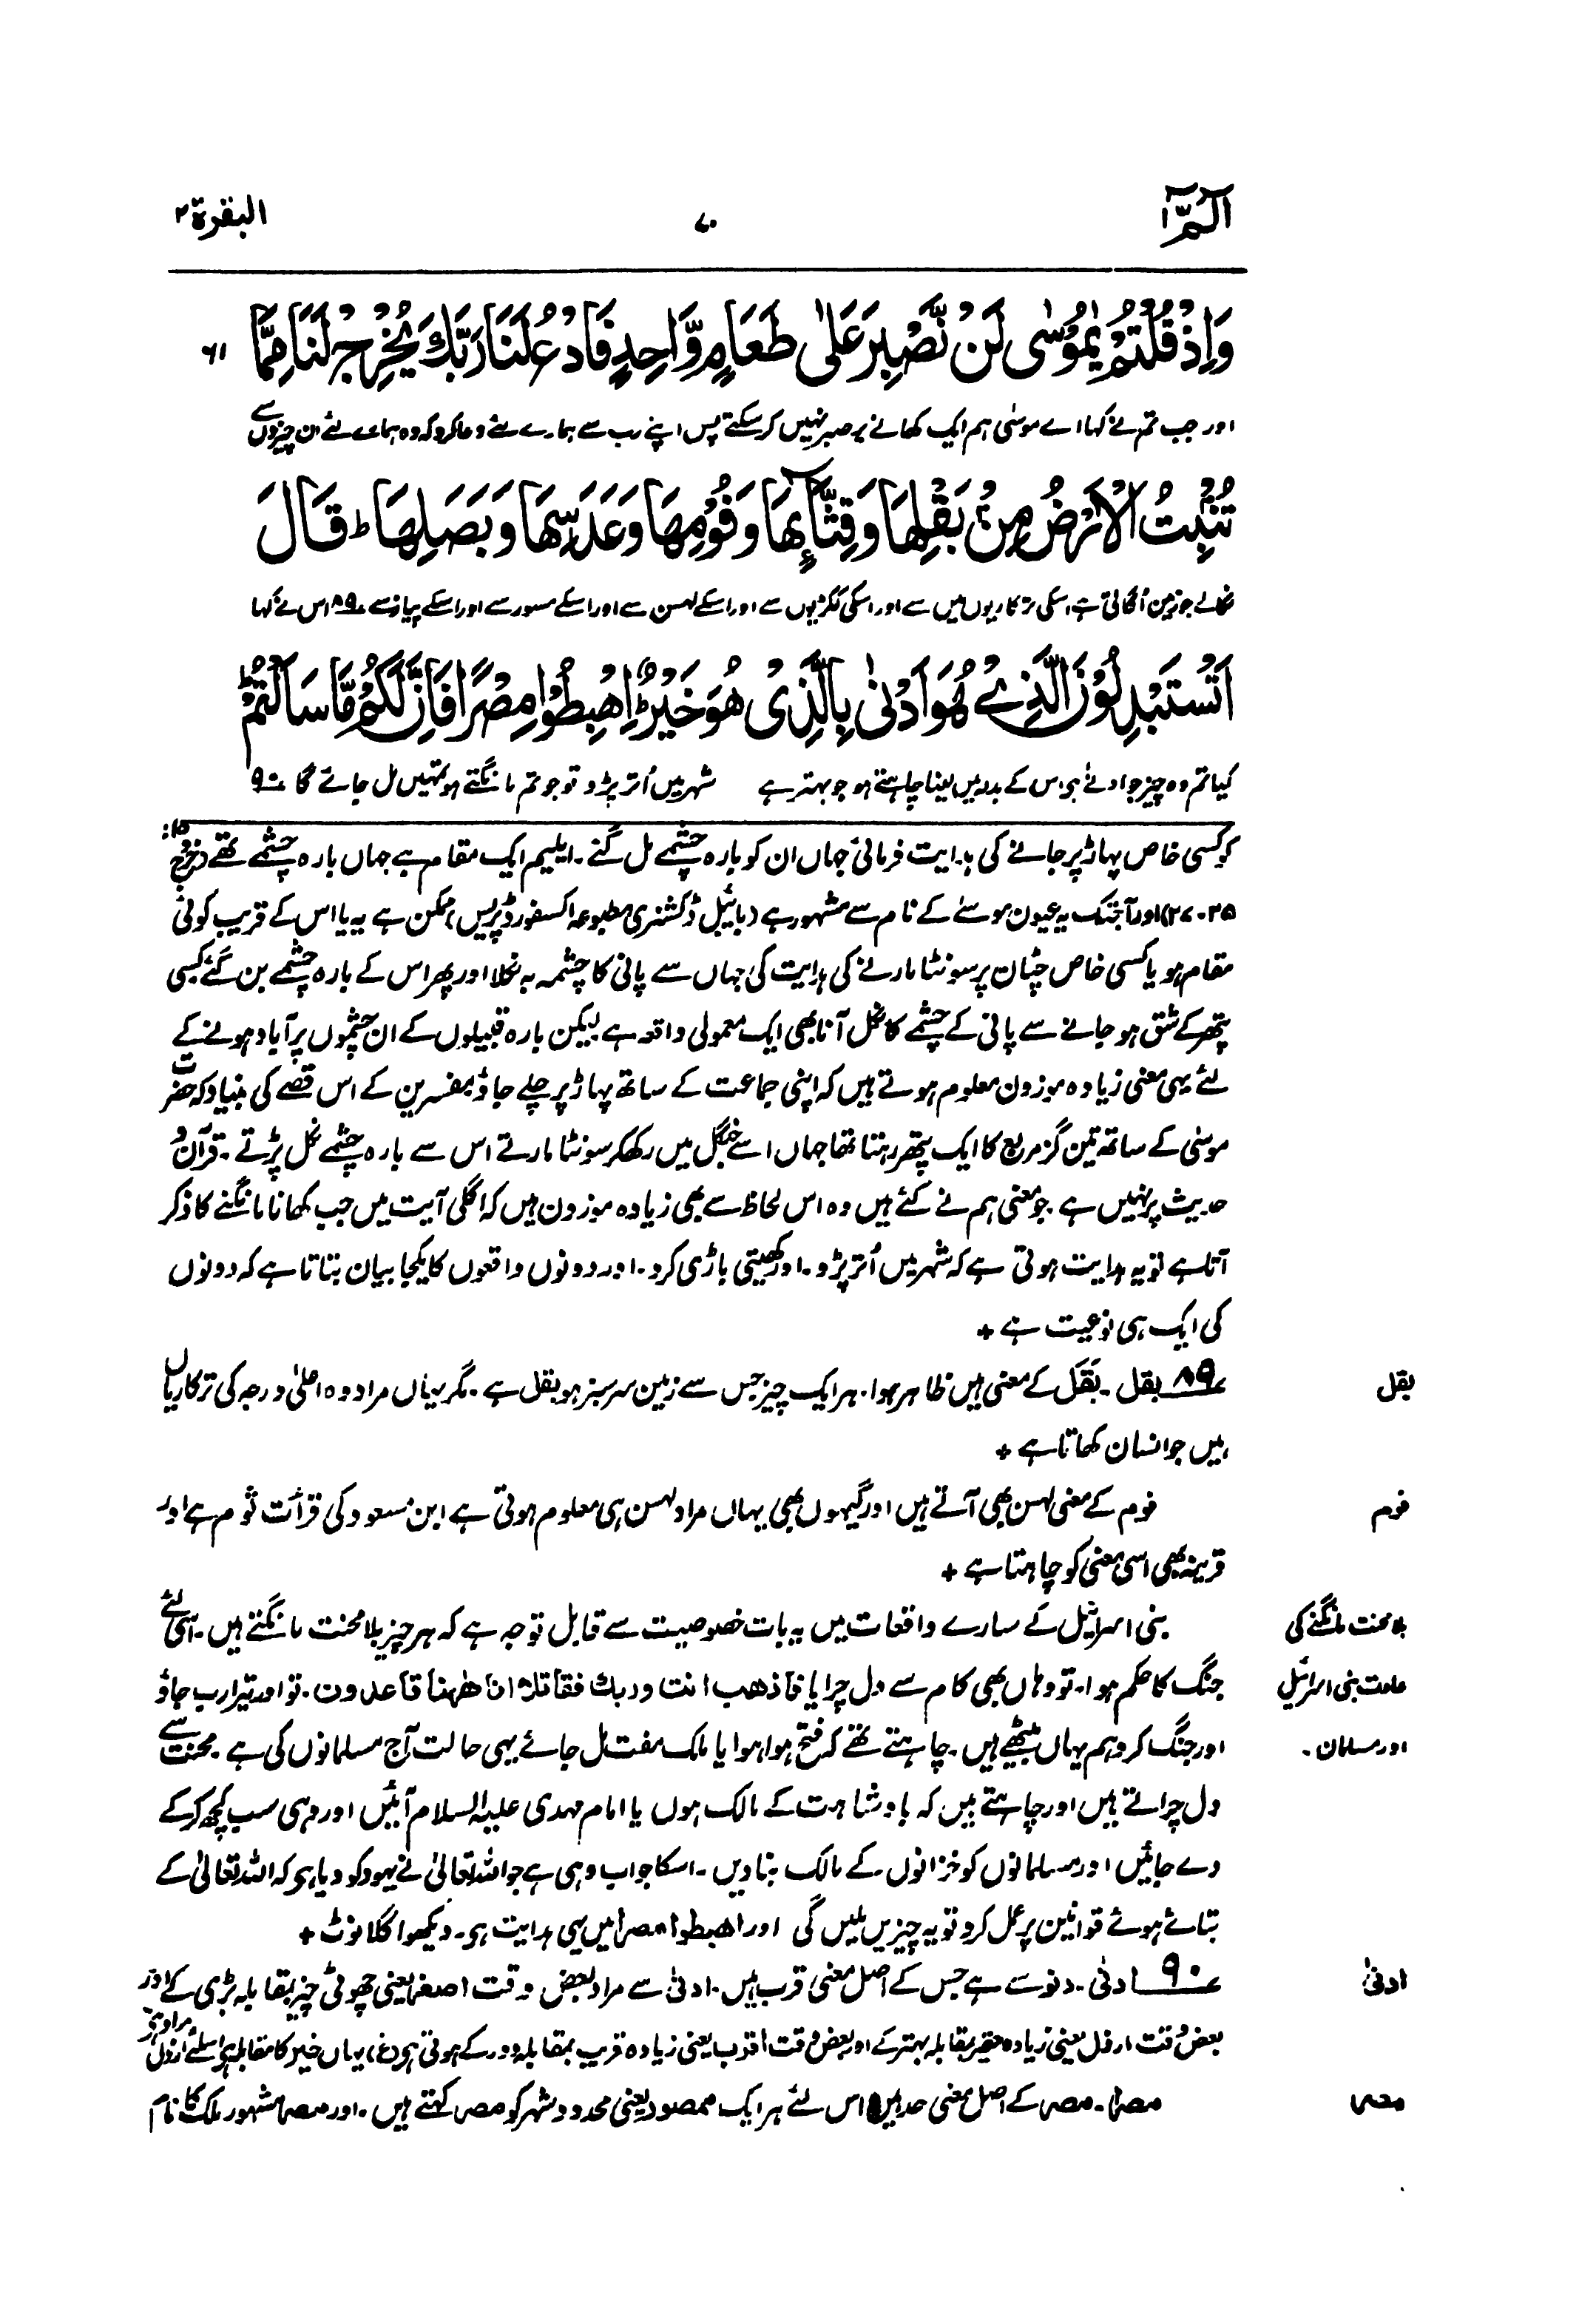 الٓمّٓ ۱
۷۰
البقرۃ ۲
وَاِذْ قُلْتُمْ یٰمُوْسٰی لَنْ نَّصْبِرَ عَلٰی طَعَامٍ وَّاحِدٍ فَادْعُ لَنَا رَبَّكَ یُخْرِجْ لَنَا مِمَّا
۶۱
اور جب تم نے کہا اے موسٰی ہم ایک کھانے پر صبر نہیں کر سکتے پس اپنے رب سے ہمارے لئے دعا کرو کہ وہ ہمارے لئے ان چیزوں سے
تُنْۢبِتُ الْاَرْضُ مِنْۢ بَقْلِهَا وَقِثَّآئِهَا وَفُوْمِهَا وَعَدَسِهَا وَبَصَلِهَا ؕ قَالَ
نکالے جو زمین اُگاتی ہے، اسکی ترکاریوں میں سے اور اسکی ککڑیوں سے اور اسکے لہسن سے اور اسکے مسور سے اور اسکے پیاز سے ۸۹ اس نے کہا
اَتَسْتَبْدِلُوْنَ الَّذِیْ هُوَ اَدْنٰی بِالَّذِیْ هُوَ خَیْرٌ ؕ اِهْبِطُوْا مِصْرًا فَاِنَّ لَكُمْ مَّا سَاَلْتُمْ ؕ
کیا تم وہ چیز جو ادنےٰ ہو اس کے بدلہ میں لینا چاہتے ہو جو بہتر ہے شہر میں اُتر پڑو تو جو تم مانگتے ہو تمہیں مل جائے گا ۹۰
کو کسی خاص پہاڑ پر جانے کی ہدایت فرمائی جہاں ان کو بارہ چشمے مل گئے۔ ایلیم ایک مقام ہے جہاں بارہ چشمے تھے (خروج ۱۵:
۲۷۔۲۵) اور آجتک یہ عیون موسےٰ کے نام سے مشہور ہے (بائیبل ڈکشنری مطبوعہ اکسفورڈ پریس) ممکن ہے یہ یا اس کے قریب کوئی
مقام ہو یا کسی خاص چٹان پر سونٹا مارنے کی ہدایت کی جہاں سے پانی کا چشمہ بہ نکلا اور پھر اس کے بارہ چشمے بن گئے کسی
پتھر کے شق ہو جانے سے پانی کے چشمے کا نکل آنا بھی ایک معمولی واقعہ ہے لیکن بارہ قبیلوں کے ان چشموں پر آباد ہونے کے
لئے یہی معنی زیادہ موزون معلوم ہوتے ہیں کہ اپنی جماعت کے ساتھ پہاڑ پر چلے جاؤ مفسرین کے اس قصّے کی بنیاد کہ حضرت
موسٰی کے ساتھ تین گز مربع کا ایک پتھر رہتا تھا جہاں اسے جنگل میں رکھکر سونٹا مارتے اس سے بارہ چشمے نکل پڑتے۔ قرآن و
حدیث پر نہیں ہے۔ جو معنی ہم نے کئے ہیں وہ اس لحاظ سے بھی زیادہ موزون ہیں کہ اگلی آیت میں جب کھانا مانگنے کا ذکر
آتا ہے تو یہ ہدایت ہوتی ہے کہ شہر میں اُتر پڑو۔ اور کھیتی باڑی کرو۔ اور دونوں واقعوں کا یکجا بیان بتاتا ہے کہ دونوں
کی ایک ہی نوعیت ہے +
بقل
۸۹ بقل۔ بَقَلَ کے معنی ہیں ظاہر ہوا۔ ہر ایک چیز جس سے زمین سرسبز ہو بقل ہے۔ مگر یہاں مراد وہ اعلیٰ درجہ کی ترکاریاں
ہیں جو انسان کھاتا ہے +
فوم
فوم کے معنی لہسن بھی آتے ہیں اور گیہوں بھی یہاں مراد لہسن ہی معلوم ہوتی ہے ابن مسعود کی قرأت ثوم ہے اور
قرینہ بھی اسی معنی کو چاہتا ہے +
بلا محنت مانگنے کی
بنی اسرائیل کے سارے واقعات میں یہ بات خصوصیت سے قابل توجہ ہے کہ ہر چیز بلا محنت مانگتے ہیں۔ اسی لئے
عادت بنی اسرائیل
جنگ کا حکم ہوا۔ تو وہاں بھی کام سے دل چرایا فاذھب انت وربك فقاتلا انا ھٰھنا قاعدون۔ تو اور تیرا رب جاؤ
اور مسلمان۔
اور جنگ کرو ہم یہاں بیٹھے ہیں۔ چاہتے تھے کہ فتح ہوا ہوا یا ملک مفت مل جائے یہی حالت آج مسلمانوں کی ہے۔ محنت سے
دل چراتے ہیں اور چاہتے ہیں کہ بادشاہت کے مالک ہوں یا امام مہدی علیہ السلام آئیں اور وہی سب کچھ کر کے
دے جائیں اور مسلمانوں کو خزانوں کے مالک بنا دیں۔ اسکا جواب وہی ہے جو اللہ تعالیٰ نے یہود کو دیا ہے کہ اللہ تعالیٰ کے
بتائے ہوئے قوانین پر عمل کرو تو یہ چیزیں ملیں گی اور اھبطوا مصرا میں یہی ہدایت ہے۔ دیکھو اگلا نوٹ +
ادنیٰ
۹۰ ادنی۔ دنو سے ہے جس کے اصل معنی قرب ہیں۔ ادنیٰ سے مراد بعض وقت اصغر یعنی چھوٹی چیز بمقابلہ بڑی کے اور
بعض وقت ارذل یعنی زیادہ حقیر بمقابلہ بہتر کے اور بعض وقت اقرب یعنی زیادہ قریب بمقابلہ دور کے ہوتی ہے (غ) یہاں خیر کا مقابلہ ہے اسلئے ارذل مراد ہے
مصر
مصرا۔ مصر کے اصل معنی حد ہیں اس لئے ہر ایک ممصود یعنی محدود شہر کو مصر کہتے ہیں۔ اور مصر مشہور ملک کا نام